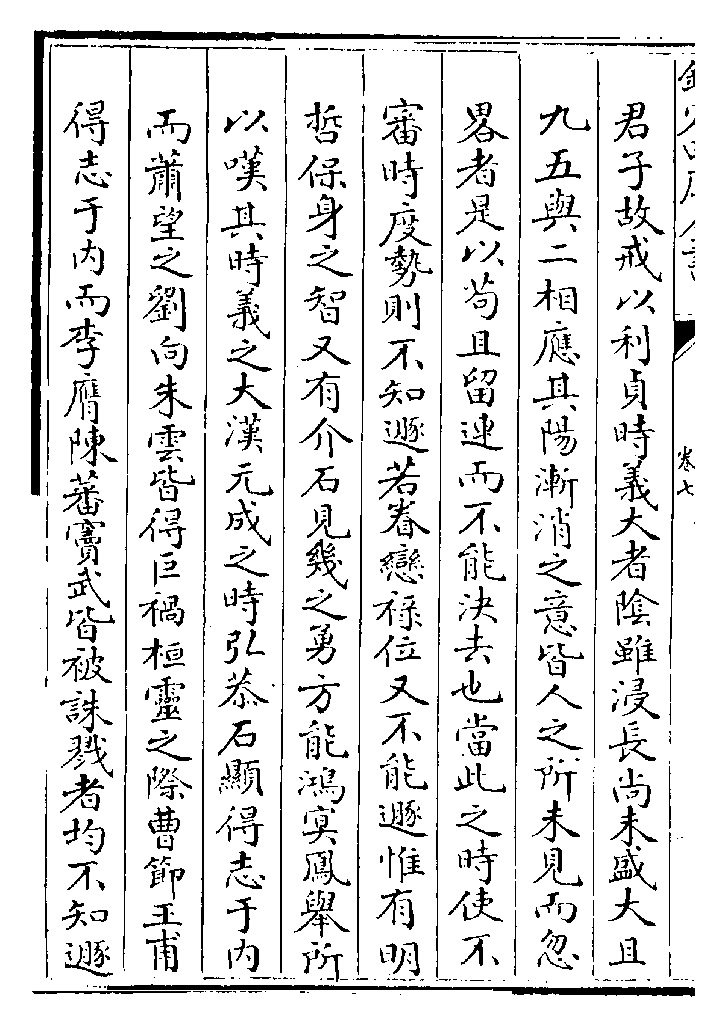 君子故戒以利貞時義大者陰雖浸長尚未盛大且
九五與二相應其陽漸消之意皆人之所未見而忽
畧者是以苟且留連而不能決去也當此之時使不
審時度勢則不知遯若眷戀祿位又不能遯惟有明
哲保身之智又有介石見幾之勇方能鴻冥鳳舉所
以嘆其時義之大漢元成之時弘恭石顯得志于內
而蕭望之劉向朱雲皆得巨禍桓靈之際曹節王甫
得志于內而李膺陳蕃竇武皆被誅戮者均不知遯
卷七